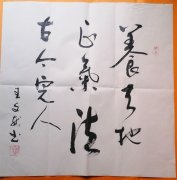 養天地
正氣法
古今完人